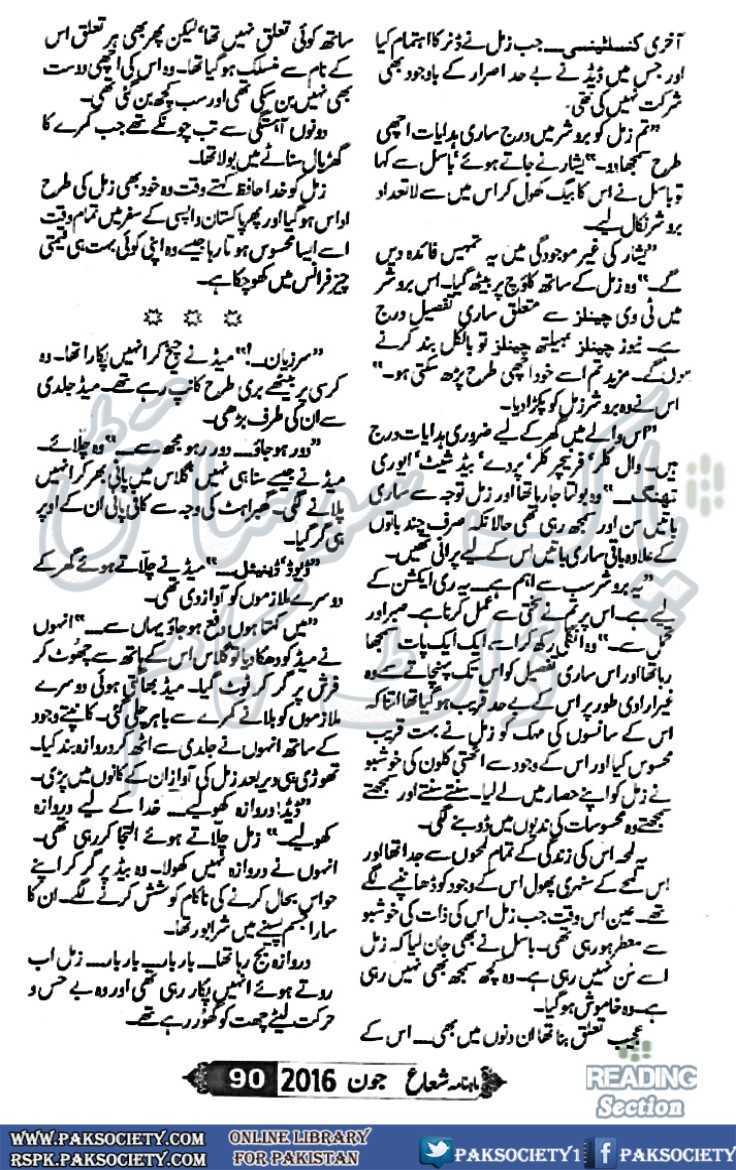 آخری کنسلٹینسی۔۔۔ جب زمل نے ڈنر کا اہتمام کیا
اور جس میں ڈیڈ نے بے حد اصرار کے باوجود بھی
شرکت نہیں کی تھی۔
”تم زمل کو بروشر میں درج ساری ہدایات اچھی
طرح سمجھا دو۔“ یشار نے جاتے ہوئے‘ باسل سے کہا
تو باسل نے اس کا بیگ کھول کر اس میں سے لاتعداد
بروشر نکال لیے۔
”یشار کی غیر موجودگی میں یہ تمہیں فائدہ دیں
گے۔“ وہ زمل کے ساتھ کاؤچ پر بیٹھ گیا۔ اس بروشر
میں ٹی وی چینلز سے متعلق ساری تفصیل درج
ہے۔ نیوز چینلز ہیلتھ چینلز تو بالکل بند کرنے
ہوں گے۔ مزید تم اسے خود اچھی طرح پڑھ سکتی ہو۔“
اس نے وہ بروشر زمل کو پکڑا دیا۔
”اس والے میں گھر کے لیے ضروری ہدایات درج
ہیں۔ وال کلر‘ فرنیچر کلر‘ پردے‘ بیڈ شیٹ‘ ایوری
تھینگ۔۔۔“ وہ بولتا جا رہا تھا اور زمل توجہ سے ساری
باتیں سن اور سمجھ رہی تھی حالانکہ صرف چند باتوں
کے علاوہ باقی ساری باتیں اس کے لیے پرانی تھیں۔
”یہ بروشر سب سے اہم ہے۔ یہ ری ایکشن کے
لیے ہے۔ اس پر تم نے سختی سے عمل کرنا ہے۔ صبر اور
تحمل سے۔“ وہ انگلی رکھ کر اسے ایک ایک بات سمجھا
رہا تھا اور اس ساری تفصیل کو اس تک پہنچاتے ہوئے وہ
غیر ارادی طور پر اس کے بے حد قریب ہو گیا تھا اتنا کہ
اس کے سانسوں کی مہک کو زمل نے بہت قریب
محسوس کیا اور اس کے وجود سے اٹھتی کلون کی خوشبو
نے زمل کو اپنے حصار میں لے لیا۔ سنتے سنتے اور سمجھتے
سمجھتے وہ محسوسات کی ندیوں میں ڈوبنے لگی۔
یہ لمحہ اس کی زندگی کے تمام لمحوں سے جدا تھا اور
اس لمحے کے سنہری پھول اس کے وجود کو ڈھانپنے لگے
تھے۔ عین اس وقت جب زمل اس کی ذات کی خوشبو
سے معطر ہو رہی تھی۔ باسل نے بھی جان لیا کہ زمل
اسے سن نہیں رہی ہے۔ وہ کچھ سمجھ بھی نہیں رہی
ہے۔ وہ خاموش ہو گیا۔
عجیب تعلق بنا تھا ان دنوں میں بھی۔۔۔ اس کے
ساتھ کوئی تعلق نہیں تھا‘ لیکن پھر بھی ہر تعلق اس
کے نام سے منسلک ہو گیا تھا۔ وہ اس کی اچھی دوست
بھی نہیں بن سکی تھی اور سب کچھ بن گئی تھی۔
دونوں آہستگی سے تب چونکے تھے جب کمرے کا
گھڑیال سناٹے میں بولا تھا۔
زمل کو خدا حافظ کہتے وقت وہ خود بھی زمل کی طرح
اداس ہو گیا اور پھر پاکستان واپسی کے سفر میں تمام وقت
اسے ایسا محسوس ہوتا رہا جیسے وہ اپنی کوئی بہت ہی قیمتی
چیز فرانس میں کھو چکا ہے۔
☼ ☼ ☼
”سرزیان۔۔!“ میڈ نے چیخ کر انہیں پکارا تھا۔ وہ
کرسی پر بیٹھے بری طرح کانپ رہے تھے۔ میڈ جلدی
سے ان کی طرف بڑھی۔
”دور ہو جاؤ۔۔۔ دور رہو مجھ سے۔۔۔“ وہ چلائے۔
میڈ نے جیسے سنا ہی نہیں‘ گلاس میں پانی بھر کر انہیں
پلانے لگی۔ گھبراہٹ کی وجہ سے کافی پانی ان کے اوپر
ہی گر گیا۔
”ڈیوڈ‘ ڈینیل۔۔۔“ میڈ نے چلاتے ہوئے گھر کے
دوسرے ملازموں کو آواز دی تھی۔
”میں کہتا ہوں دفع ہو جاؤ یہاں سے۔۔۔“ انہوں
نے میڈ کو دھکا دیا تو گلاس اس کے ہاتھ سے چھوٹ کر
فرش پر گر کر ٹوٹ گیا۔ میڈ بھاگتی ہوئی دوسرے
ملازموں کو بلانے کمرے سے باہر چلی گئی۔ کانپتے وجود
کے ساتھ انہوں نے جلدی سے اٹھ کر دروازہ بند کیا۔
تھوڑی ہی دیر بعد زمل کی آواز ان کے کانوں میں پڑی۔
”ڈیڈ! دروازہ کھولیے۔۔۔ خدا کے لیے دروازہ
کھولیے۔“ زمل چلاتے ہوئے التجا کر رہی تھی۔
انہوں نے دروازہ نہیں کھولا۔ وہ بیڈ پر گر کر اپنے
حواس بحال کرنے کی ناکام کوشش کرنے لگے۔ ان کا
سارا جسم پسینے میں شرابور تھا۔
دروازہ بج رہا تھا۔۔۔ بار بار۔۔۔ بار بار۔۔۔ زمل اب
روتے ہوئے انہیں پکار رہی تھی اور وہ بے حس و
حرکت لیٹے چھت کو گھور رہے تھے۔
پاک سوسائٹی
ڈاٹ کام
ماہنامہ شعاع جون 2016 90
READING
Section
WWW.PAKSOCIETY.COM
RSPK.PAKSOCIETY.COM
ONLINE LIBRARY
FOR PAKISTAN
PAKSOCIETY1
PAKSOCIETY